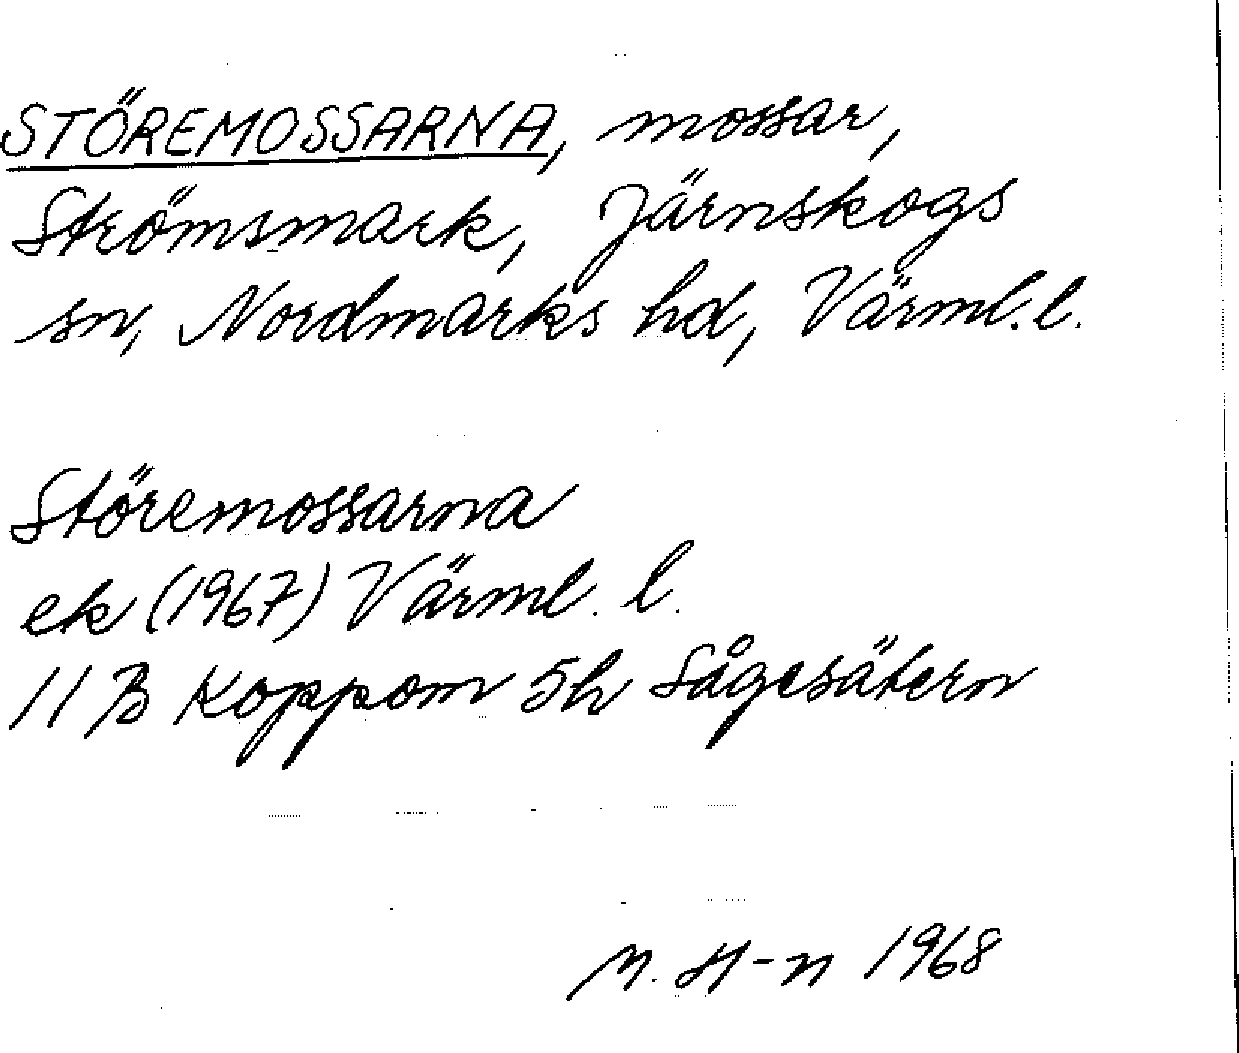 STÖREMOSSARNA, mossar,
Strömsmark, Järnskogs
sn, Nordmarks hd, Värml. l.
Störemossarna
ek (1967) Värml. l.
11 B Koppom 5h Sågesätern
M. H-n 1968